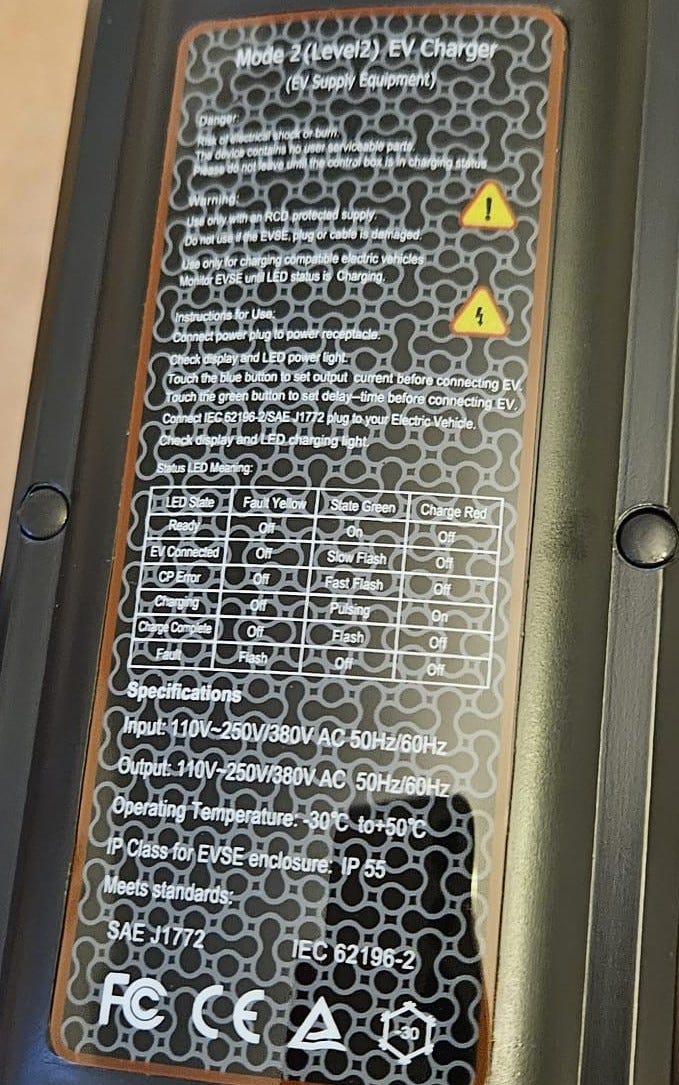 Mode 2(Level2) EV Charger
(EV Supply Equipment)
Danger:
Risk of electrical shock or burn.
The device contains no user serviceable parts.
Please do not leave until the control box is in charging status
Warning:
Use only with an RCD protected supply.
Do not use if the EVSE, plug or cable is damaged.
Use only for charging compatible electric vehicles
Monitor EVSE until LED status is Charging.
Instructions for Use:
Connect power plug to power receptacle.
Check display and LED power light.
Touch the blue button to set output current before connecting EV.
Touch the green button to set delay-time before connecting EV.
Connect IEC 62196-2/SAE J1772 plug to your Electric Vehicle.
Check display and LED charging light.
Status LED Meaning:
LED State Fault Yellow State Green Charge Red
Ready Off On Off
EV Connected Off Slow Flash Off
CP Error Off Fast Flash Off
Charging Off Pulsing On
Charge Complete Off Flash Off
Fault Flash Off Off
Specifications
Input: 110V~250V/380V AC 50Hz/60Hz
Output: 110V~250V/380V AC 50Hz/60Hz
Operating Temperature: -30℃ to+50℃
IP Class for EVSE enclosure: IP 55
Meets standards:
SAE J1772 IEC 62196-2
FC CE -30